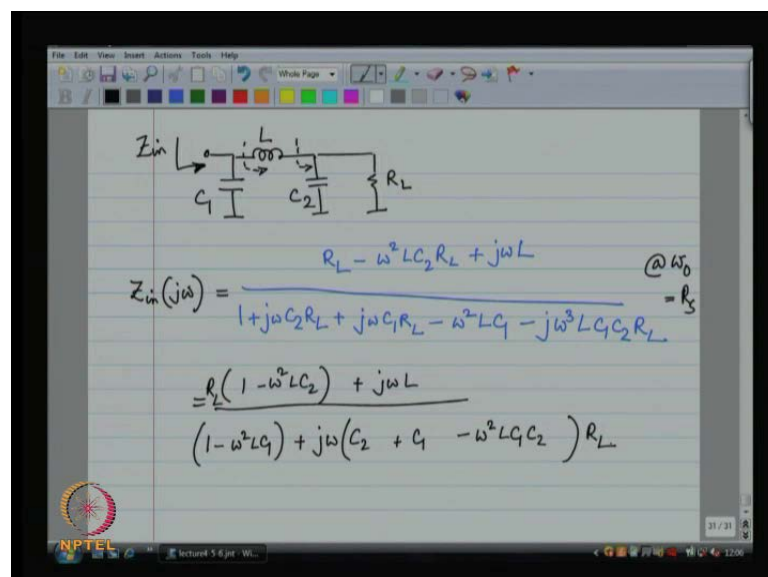 File Edit View Insert Actions Tools Help
Whole Page
B I
Zin
L
C₁
C₂
R_L
Z_in(jω) = (R_L - ω²LC₂R_L + jωL) / (1 + jωC₂R_L + jωC₁R_L - ω²LC₁ - jω³LC₁C₂R_L)
@ω₀
= R_S
= (R_L(1 - ω²LC₂) + jωL) / ((1 - ω²LC₁) + jω(C₂ + C₁ - ω²LC₁C₂)R_L)
31 / 31
NPTEL
lecture4-5-6.jnt - Wi...
12:06